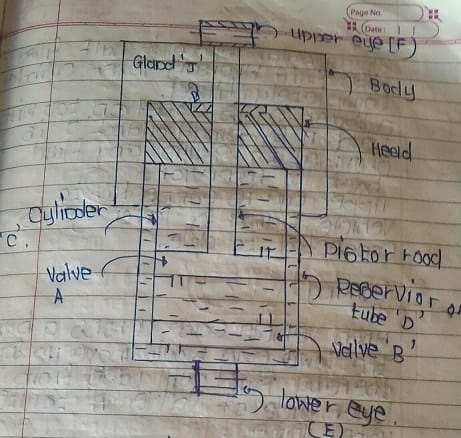 Page No.
Date:
upper eye [F]
Gland 'J'
Body
Head
Cylinder
'C'.
Piston rood
Valve
A
Reservior
tube 'D'
valve 'B'
lower eye.
(E)